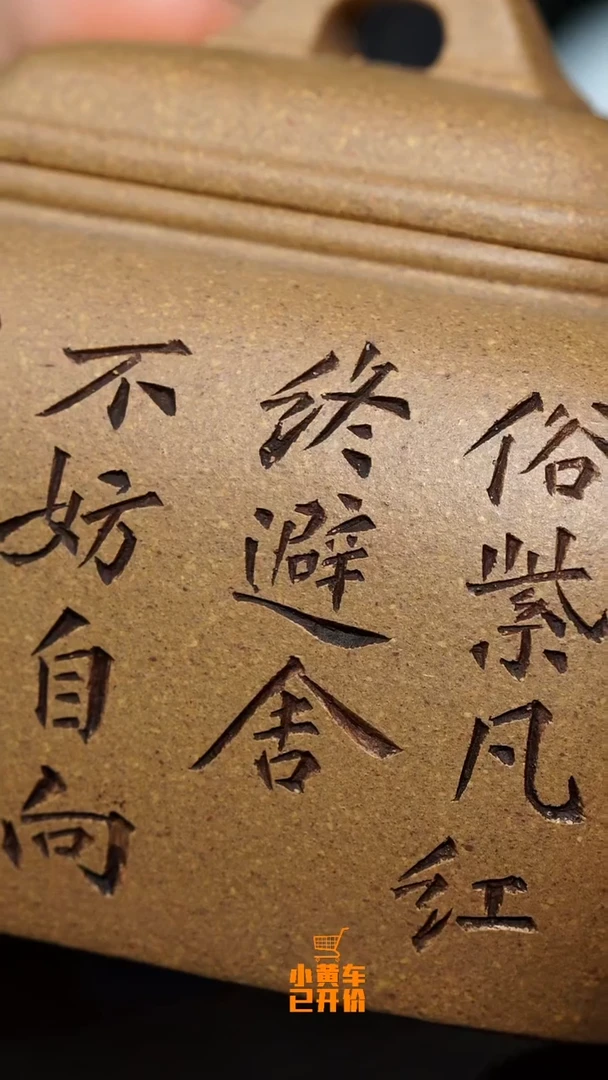 俗紫凡红
终避舍
不妨自向
小黄车
已开价